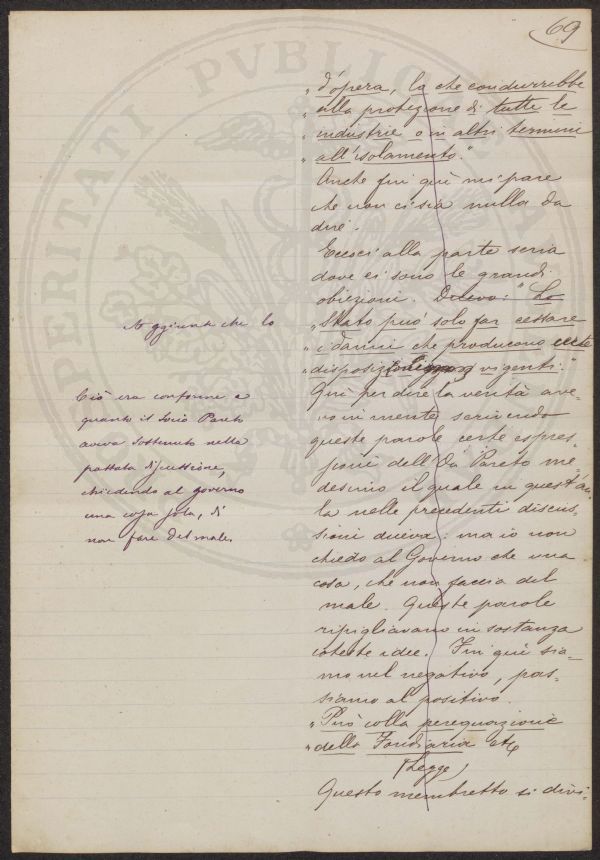 69
„ d'opera, lo che condurrebbe
„ alla protezione di tutte le
„ industrie o in altri termini
„ all'isolamento."
Anche fin qui mi pare
che non ci sia nulla da
dire.
Eccoci alla parte seria
dove ci sono le grandi
obiezioni. Dicevo: " Lo
„ Stato può solo far cessare
„ i danni che producono certe
disposizioni vigenti."
Qui per dire la verità ave-
vo in mente scrivendo
queste parole certe espres-
sioni dell' Pareto me-
desimo il quale in quest'au-
la nelle precedenti discus-
sioni diceva: ma io non
chiedo al Governo che una
cosa, che non faccia del
male. Queste parole
ripigliavano in sostanza
coteste idee. Fin qui sia-
mo nel negativo, pas-
siamo al positivo.
„ Può colla perequazione
„ della Fondiaria etc
(Legge)
Questo membretto si divi-
Aggiunse che lo
Ciò era conforme a
quanto il Socio Pareto
aveva sostenuto nella
passata discussione,
chiedendo al governo
una cosa sola, di
non fare del male.
PROSPERITATI PVBLICAE